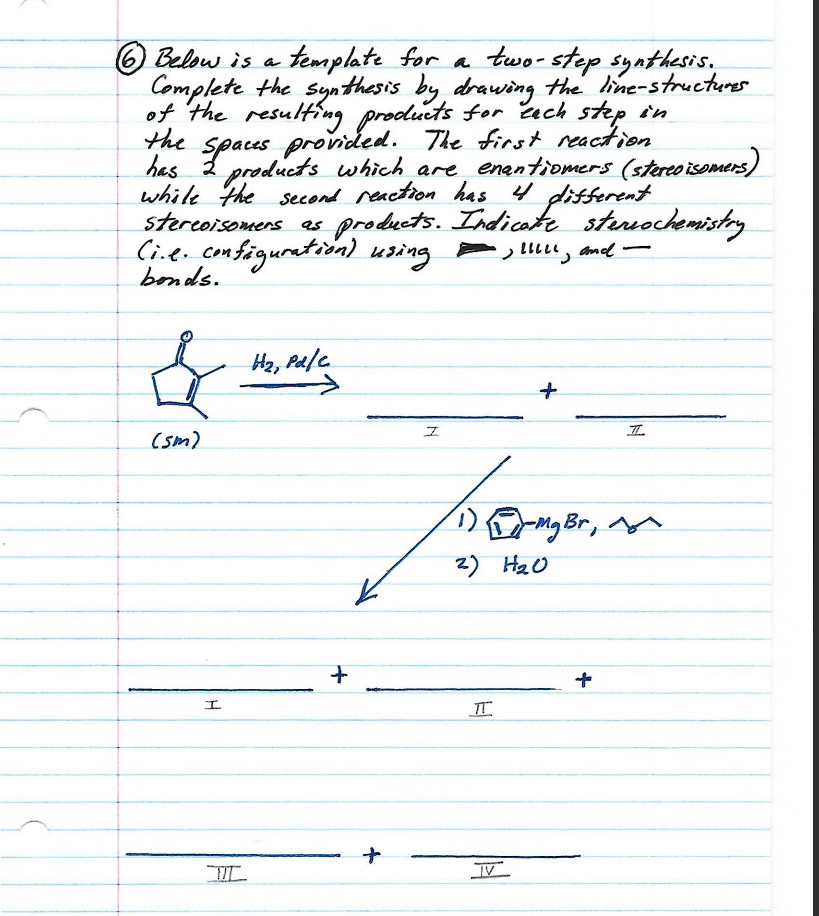 ⑥ Below is a template for a two-step synthesis.
Complete the synthesis by drawing the line-structures
of the resulting products for each step in
the spaces provided. The first reaction
has 2 products which are enantiomers (stereoisomers)
while the second reaction has 4 different
stereoisomers as products. Indicate stereochemistry
(i.e. configuration) using , , and —
bonds.
O
H₂, Pd/C
+
(sm)
I
II
1) -MgBr, O
2) H₂O
+
+
I
II
+
III
IV